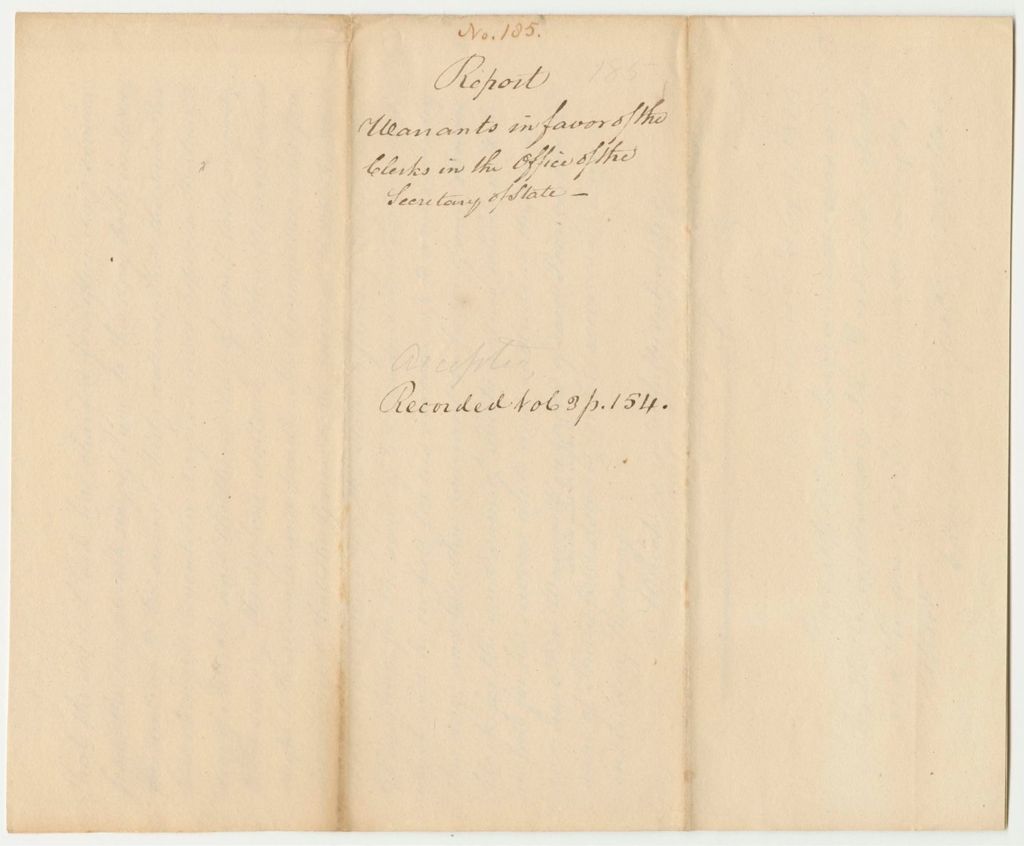 No. 185.
Report 185
Warrants in favor of the
Clerks in the Office of the
Secretary of State –
Accepted,
Recorded Vol 3 p. 154.